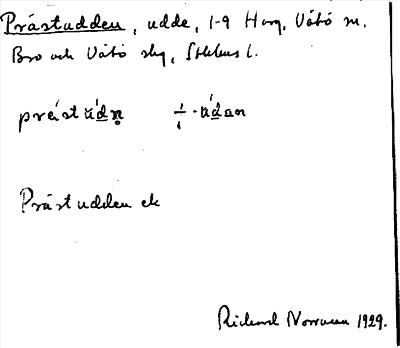 Prästudden, udde, 1-9 Harg, Vätö sn.
Bro och Vätö skg, Sthlms l.
prästùdn̥ ⊥ ·ùdan
Prästudden ek
Rickard Norrman 1929.